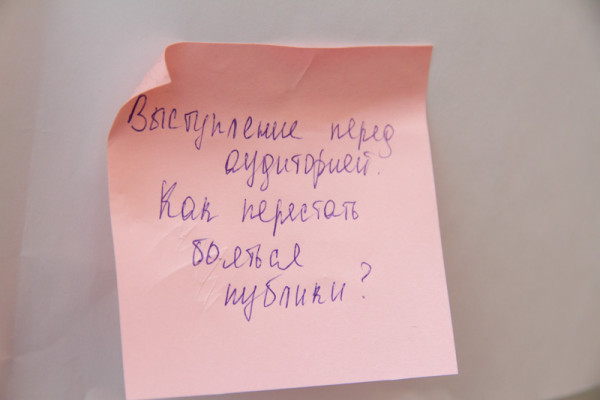 Выступление перед
аудиторией.
Как перестать
бояться
публики?